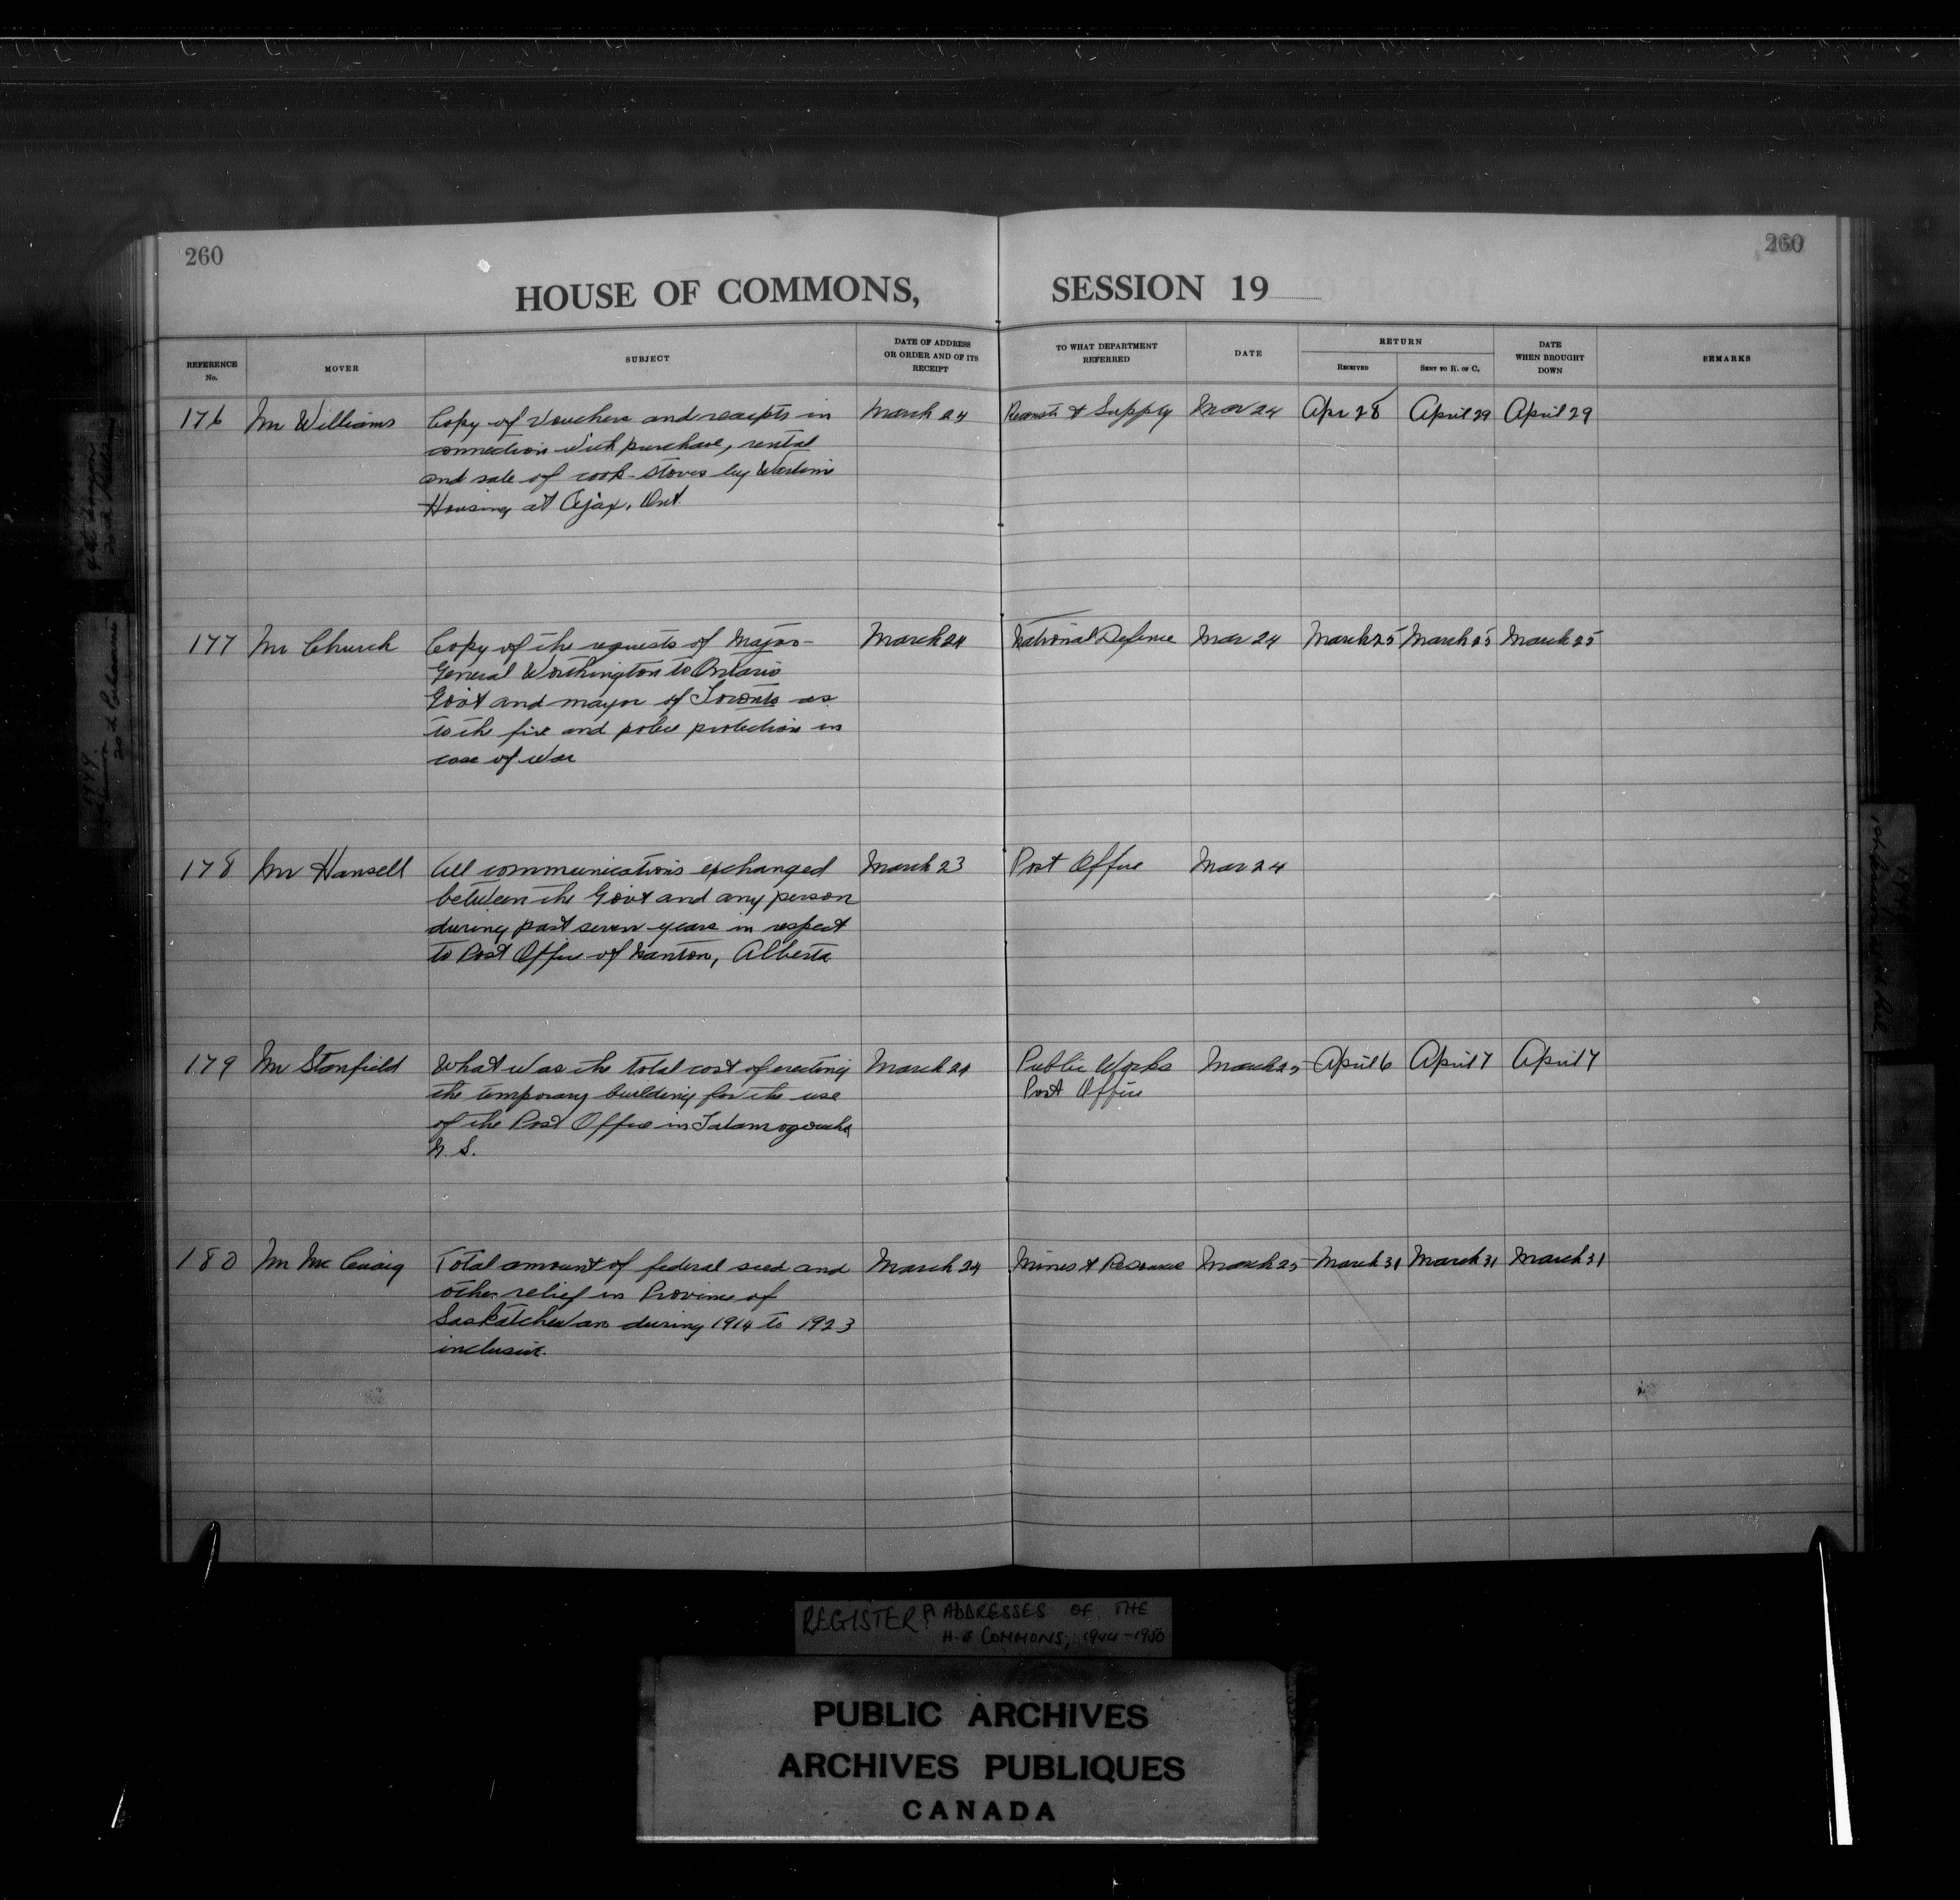 260
260
HOUSE OF COMMONS, SESSION 19
REFERENCE No. MOVER SUBJECT DATE OF ADDRESS OR ORDER AND OF ITS RECEIPT TO WHAT DEPARTMENT REFERRED DATE RETURN RECEIVED SENT TO H. OF C. DATE WHEN BROUGHT DOWN REMARKS
176 Mr Williams Copy of vouchers and receipts in March 24 Reconstr & Supply Mar 24 Apr 28 April 29 April 29
connection with purchase, rental
and sale of cook-stoves by Wartime
Housing at Ajax, Ont.
177 Mr Church Copy of the requests of Major- March 24 National Defence Mar 24 March 25 March 25 March 25
General Worthington to Ontario
Gov't and mayor of Toronto as
to the fire and police protection in
case of war
178 Mr Hansell All communications exchanged March 23 Post Office Mar 24
between the Govt and any person
during past seven years in respect
to Post Office of Nanton, Alberta
179 Mr Stanfield What was the total cost of erecting March 24 Public Works March 25 April 6 April 7 April 7
the temporary building for the use Post Office
of the Post Office in Tatamagouche
N.S.
180 Mr McCuaig Total amount of federal seed and March 24 Mines & Resources March 25 March 31 March 31 March 31
other relief in Province of
Saskatchewan during 1914 to 1923
inclusive.
REGISTER ADDRESSES OF THE
H. OF COMMONS, 1944-1950
PUBLIC ARCHIVES
ARCHIVES PUBLIQUES
CANADA